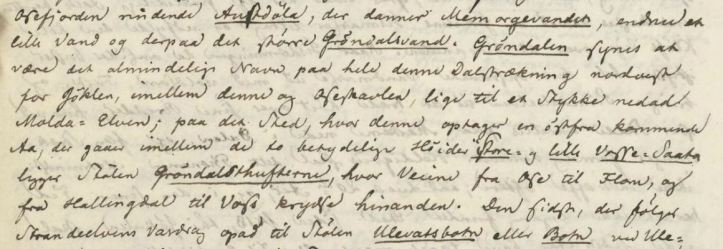 Osefjorden rindende Austdöla, der danner Memorgevandet, endnu et
lille Vand og derpaa det större Gröndalsvand. Gröndalen synes at
være det almindelige Navn paa hele denne Dalstrækning nordvest
for Jöklen, imellem denne og Oseskavlen, lige til et Stykke nedad
Molda-Elven; paa det Sted, hvor denne optager en östfra kommende
Aa, der gaaer imellem de to betydelige Höider Store- og lille Vosse-Saata
ligger Stölen Gröndalsthufterne, hvor Veiene fra Ose til Flom, og
fra Hallingdal til Voss krydse hinanden. Den sidste, der fölger
Strandeelvens Vasdrag opad til Stölen Ulevatsbotn eller Botn ved Ule-